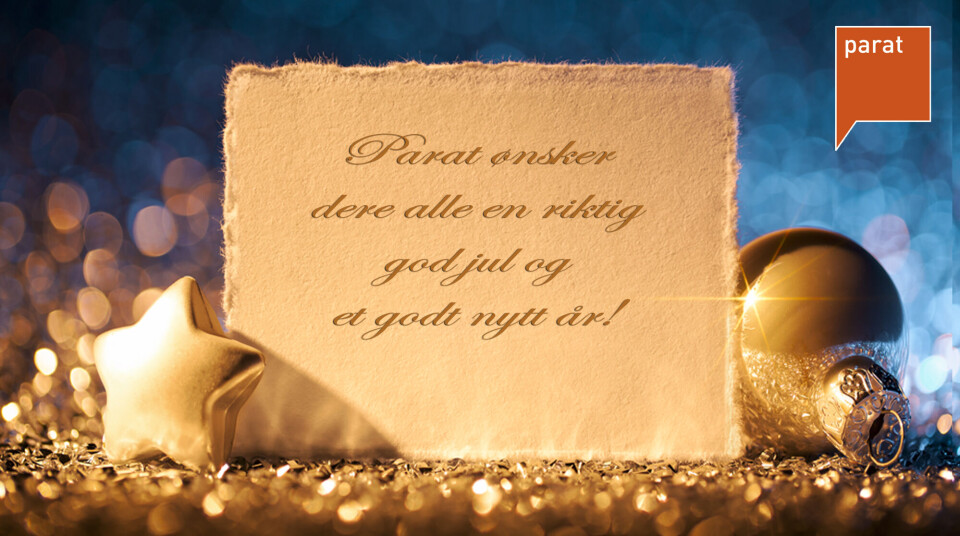 parat
Parat ønsker
dere alle en riktig
god jul og
et godt nytt år!